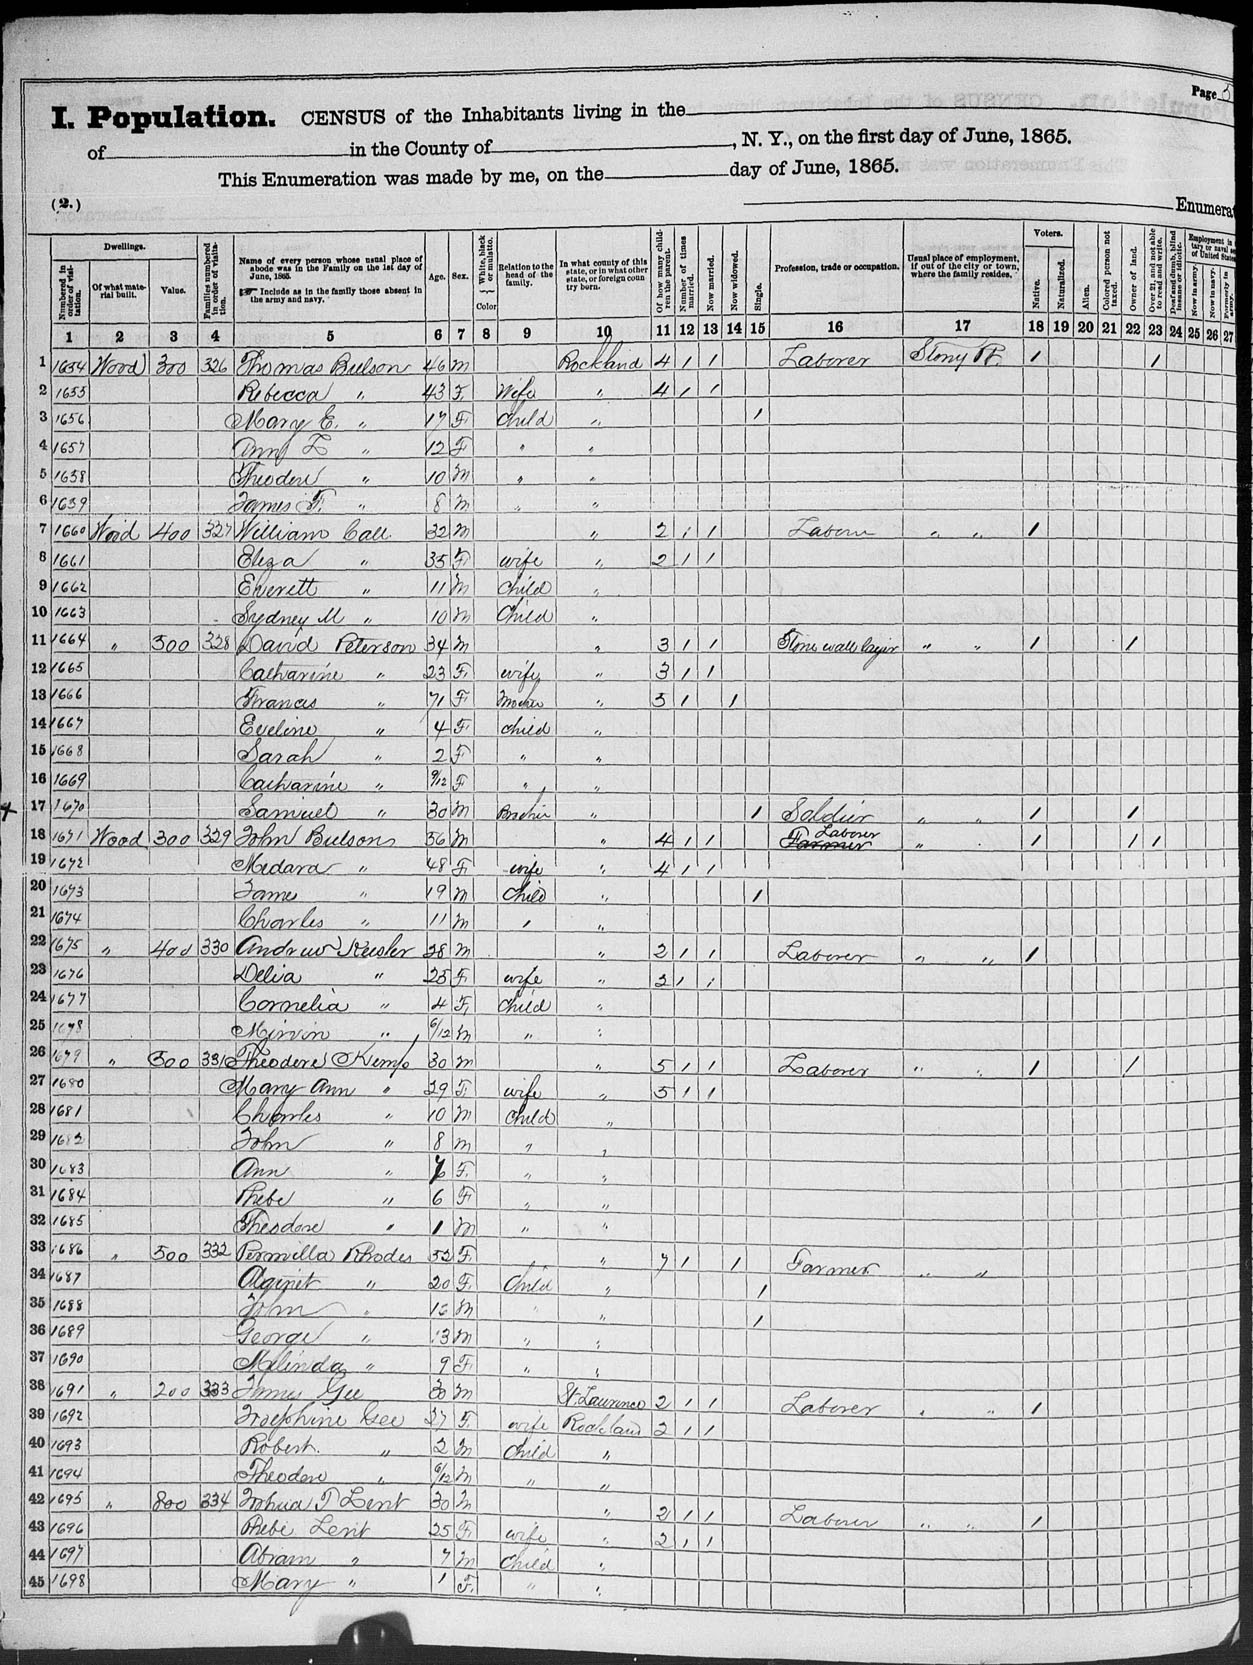 Page 5
I. Population. CENSUS of the Inhabitants living in the
of in the County of , N. Y., on the first day of June, 1865.
This Enumeration was made by me, on the day of June, 1865.
(2.) Enumerat
Dwellings. Voters.
Numbered in order of visitation. Of what material built. Value. Families numbered in order of visitation. Name of every person whose usual place of abode was in the Family on the 1st day of June, 1865. ☞ Include as in the family those absent in the army and navy. Age. Sex. White, black or mulatto. Color Relation to the head of the family. In what county of this state, or in what other state, or foreign country born. Of how many children the parent. Number of times married. Now married. Now widowed. Single. Profession, trade or occupation. Usual place of employment, if out of the city or town, where the family resides. Native. Naturalized. Alien. Colored person not taxed. Owner of land. Over 21, and not able to read and write. Deaf and dumb, blind insane or idiotic. Employment in military or naval se of United States Now in army. Now in navy. Formerly in army.
1 2 3 4 5 6 7 8 9 10 11 12 13 14 15 16 17 18 19 20 21 22 23 24 25 26 27
1 1654 Wood 300 326 Thomas Bulson 46 M Rockland 4 1 1 Laborer Stony Pt. 1 1
2 1655 Rebecca " 43 F. Wife " 4 1 1
3 1656 Mary E. " 17 F Child " 1
4 1657 Ann L " 12 F " "
5 1658 Theodore " 10 M " "
6 1659 James F. " 8 M " "
7 1660 Wood 400 327 William Call. 32 M " 2 1 1 Laborer " " 1
8 1661 Eliza " 35 F wife " 2 1 1
9 1662 Everett " 11 M Child "
10 1663 Sydney M " 10 M Child "
11 1664 " 500 328 David Peterson 34 M " 3 1 1 Stone wall layer " " 1 1
12 1665 Catharine " 23 F. wife " 3 1 1
13 1666 Francis " 71 F Mother " 5 1 1
14 1667 Eveline " 4 F child "
15 1668 Sarah " 2 F " "
16 1669 Catharine " 9/12 F " "
17 1670 Samuel " 30 M Brother " 1 Soldier " " 1 1
18 1671 Wood 300 329 John Bulson 56 M " 4 1 1 Farmer Laborer " " 1 1 1
19 1672 Medara " 48 F wife " 4 1 1
20 1673 Jame " 19 M Child " 1
21 1674 Charles " 11 M " "
22 1675 " 400 330 Andrew Keesler 28 M " 2 1 1 Laborer " " 1
23 1676 Delia " 25 F wife " 2 1 1
24 1677 Cornelia " 4 F, Child "
25 1678 Mirvin " 6/12 M " "
26 1679 " 500 331 Theodore Kemp 30 M " 5 1 1 Laborer " " 1 1
27 1680 Mary Ann " 29 F wife " 5 1 1
28 1681 Charles " 10 M Child "
29 1682 John " 8 M " "
30 1683 Ann " 7 F. " "
31 1684 Phebe " 6 F " "
32 1685 Theodore " 1 M " "
33 1686 " 500 332 Permilla Rhodes 52 F. " 7 1 1 Farmer " "
34 1687 " 20 F. Child " 1
35 1688 John " M " " 1
36 1689 George " 13 M " "
37 1690 Melinda " 9 F. " "
38 1691 " 200 333 James Gee 30 M St. Lawrence 2 1 1 Laborer " " 1
39 1692 Josephine Gee 27 F. wife Rockland 2 1 1
40 1693 Robert. " 2 M Child "
41 1694 Theodore " 6/12 M " "
42 1695 " 800 334 Joshua T Lent 30 M " 2 1 1 Laborer " " 1
43 1696 Phebe Lent 25 F wife " 2 1 1
44 1697 Abram " 7 M Child "
45 1698 Mary " 1 F. " "